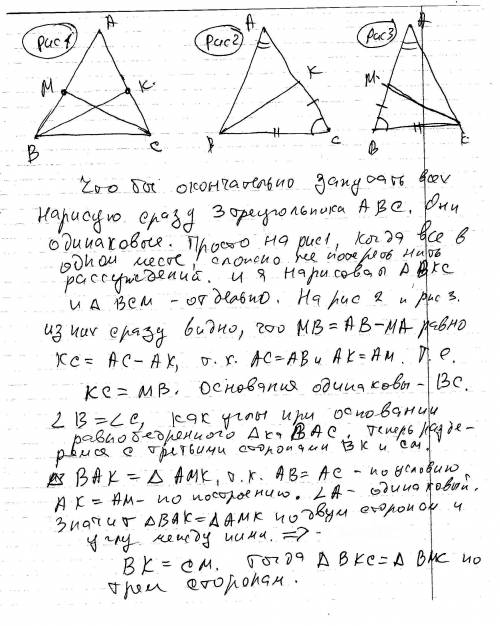 Рис 1 Рис 2 Рис 3
A A A
M K K M
B C B C B C
Что бы окончательно запутать всех
нарисую сразу 3 треугольника ABC. Они
одинаковые. Просто на рис 1, когда все в
одном месте, сложно не потерять нить
рассуждений. и я нарисовал Δ BKC
и Δ BCM - отдельно. На рис 2 и рис 3.
из них сразу видно, что MB = AB - MA равно
KC = AC - AK, т.к. AC = AB и AK = AM. Т.е.
KC = MB. Основания одинаковы - BC.
∠B = ∠C, как углы при основании
равнобедренного Δка BAC. Теперь разбе-
ремся с третьими сторонами BK и CM.
Δ BAK = Δ AMK, т.к. AB = AC - по условию
AK = AM - по построению. ∠A - одинаковый.
Значит Δ BAK = Δ AMK по двум сторонам и
углу между ними. =>
BK = CM. Тогда Δ BKC = Δ BMC по
трем сторонам.